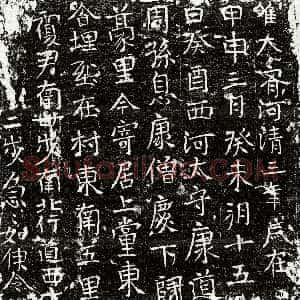 維大齊河清三年歲在
甲申三月癸未朔十五
日癸酉西河太守康道
周孫息康僧慶下關
蒿里今寄居上黨東
谷埋在村東南五里
南北行道西
二步急〻如律令